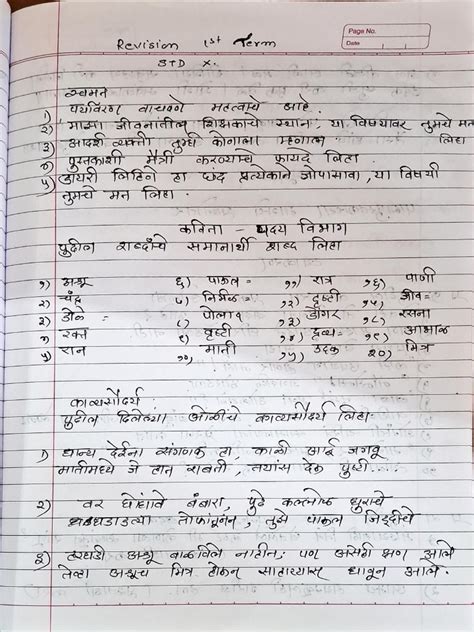 Page No.
Date
Revision 1st Term
STD X.
स्वमत
१) पर्यावरण वाचवणे महत्वाचे आहे.
२) माझ्या जीवनातील शिक्षकाचे स्थान, या विषयावर तुमचे मत लिहा
३) आदर्श व्यक्ती तुम्ही कोणाला म्हणाल
४) पुस्तकाशी मैत्री करण्याचे फायदे लिहा.
५) डायरी लिहिणे हा छंद प्रत्येकाने जोपासावा, या विषयी
तुमचे मन लिहा.
कविता - पद्य विभाग
पुढील शब्दांचे समानार्थी शब्द लिहा
१) अश्रू ६) पाऊल= ११) रात्र १६) पाणी
२) चंद्र ७) निर्मळ= १२) दृष्टी १७) जीव=
३) डोळे= ८) पोलाद १३) डोंगर १८) रसना
४) रक्त ९) वृष्टी १४) द्रव्य= १९) आभाळ
५) रान १०) माती १५) उदक २०) मित्र
काव्यसौंदर्य
पुढील दिलेल्या ओळींचे काव्यसौंदर्य लिहा.
१) धान्य देईना संगणक हा, काळी आई जगवू
मातीमध्ये जे हात राबती, तयांस देऊ पुष्टी....
२) वर घोंघावे बंबारा, पुढे कल्लोळ धुराचे
धडधडाडत्या तोफांतून, तुझे पाऊल जिद्दीचे
३) तरीही अश्रू बाळविले नाहीत; पण असेही क्षण आले
तेव्हा अश्रूच मित्र होऊन साहाय्यास धावून आले